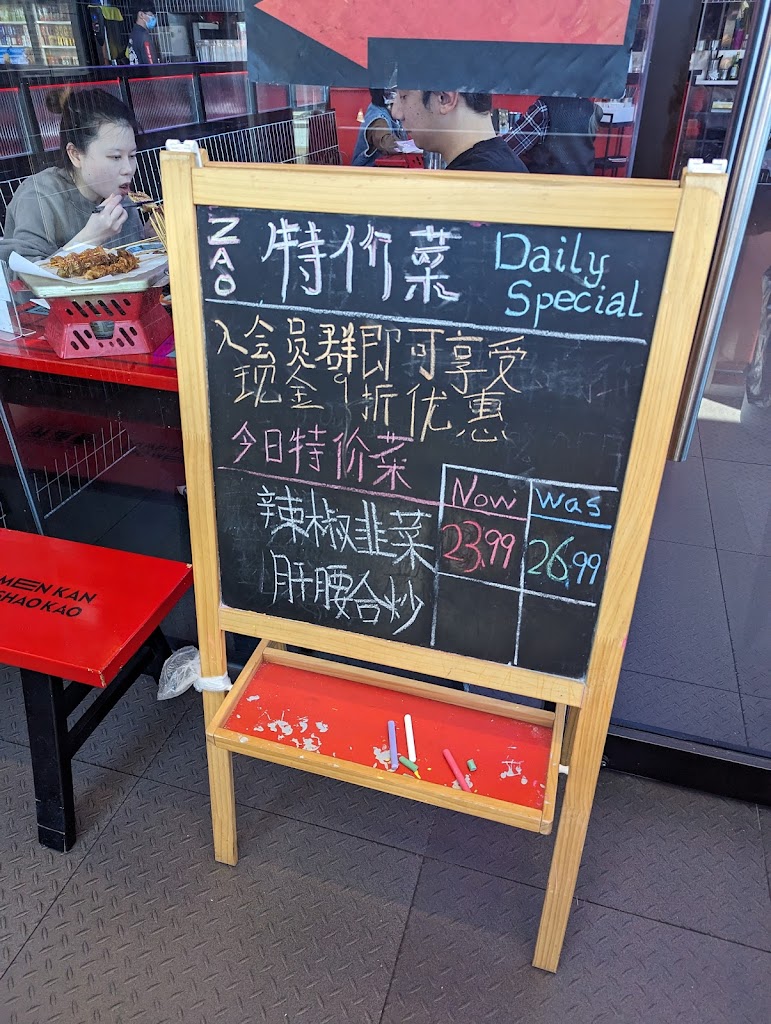 ZAO 特价菜 Daily Special
入会员群即可享受
现金9折优惠
今日特价菜
Now Was
辣椒韭菜 23.99 26.99
肝腰合炒
MEN KAN
SHAO KAO